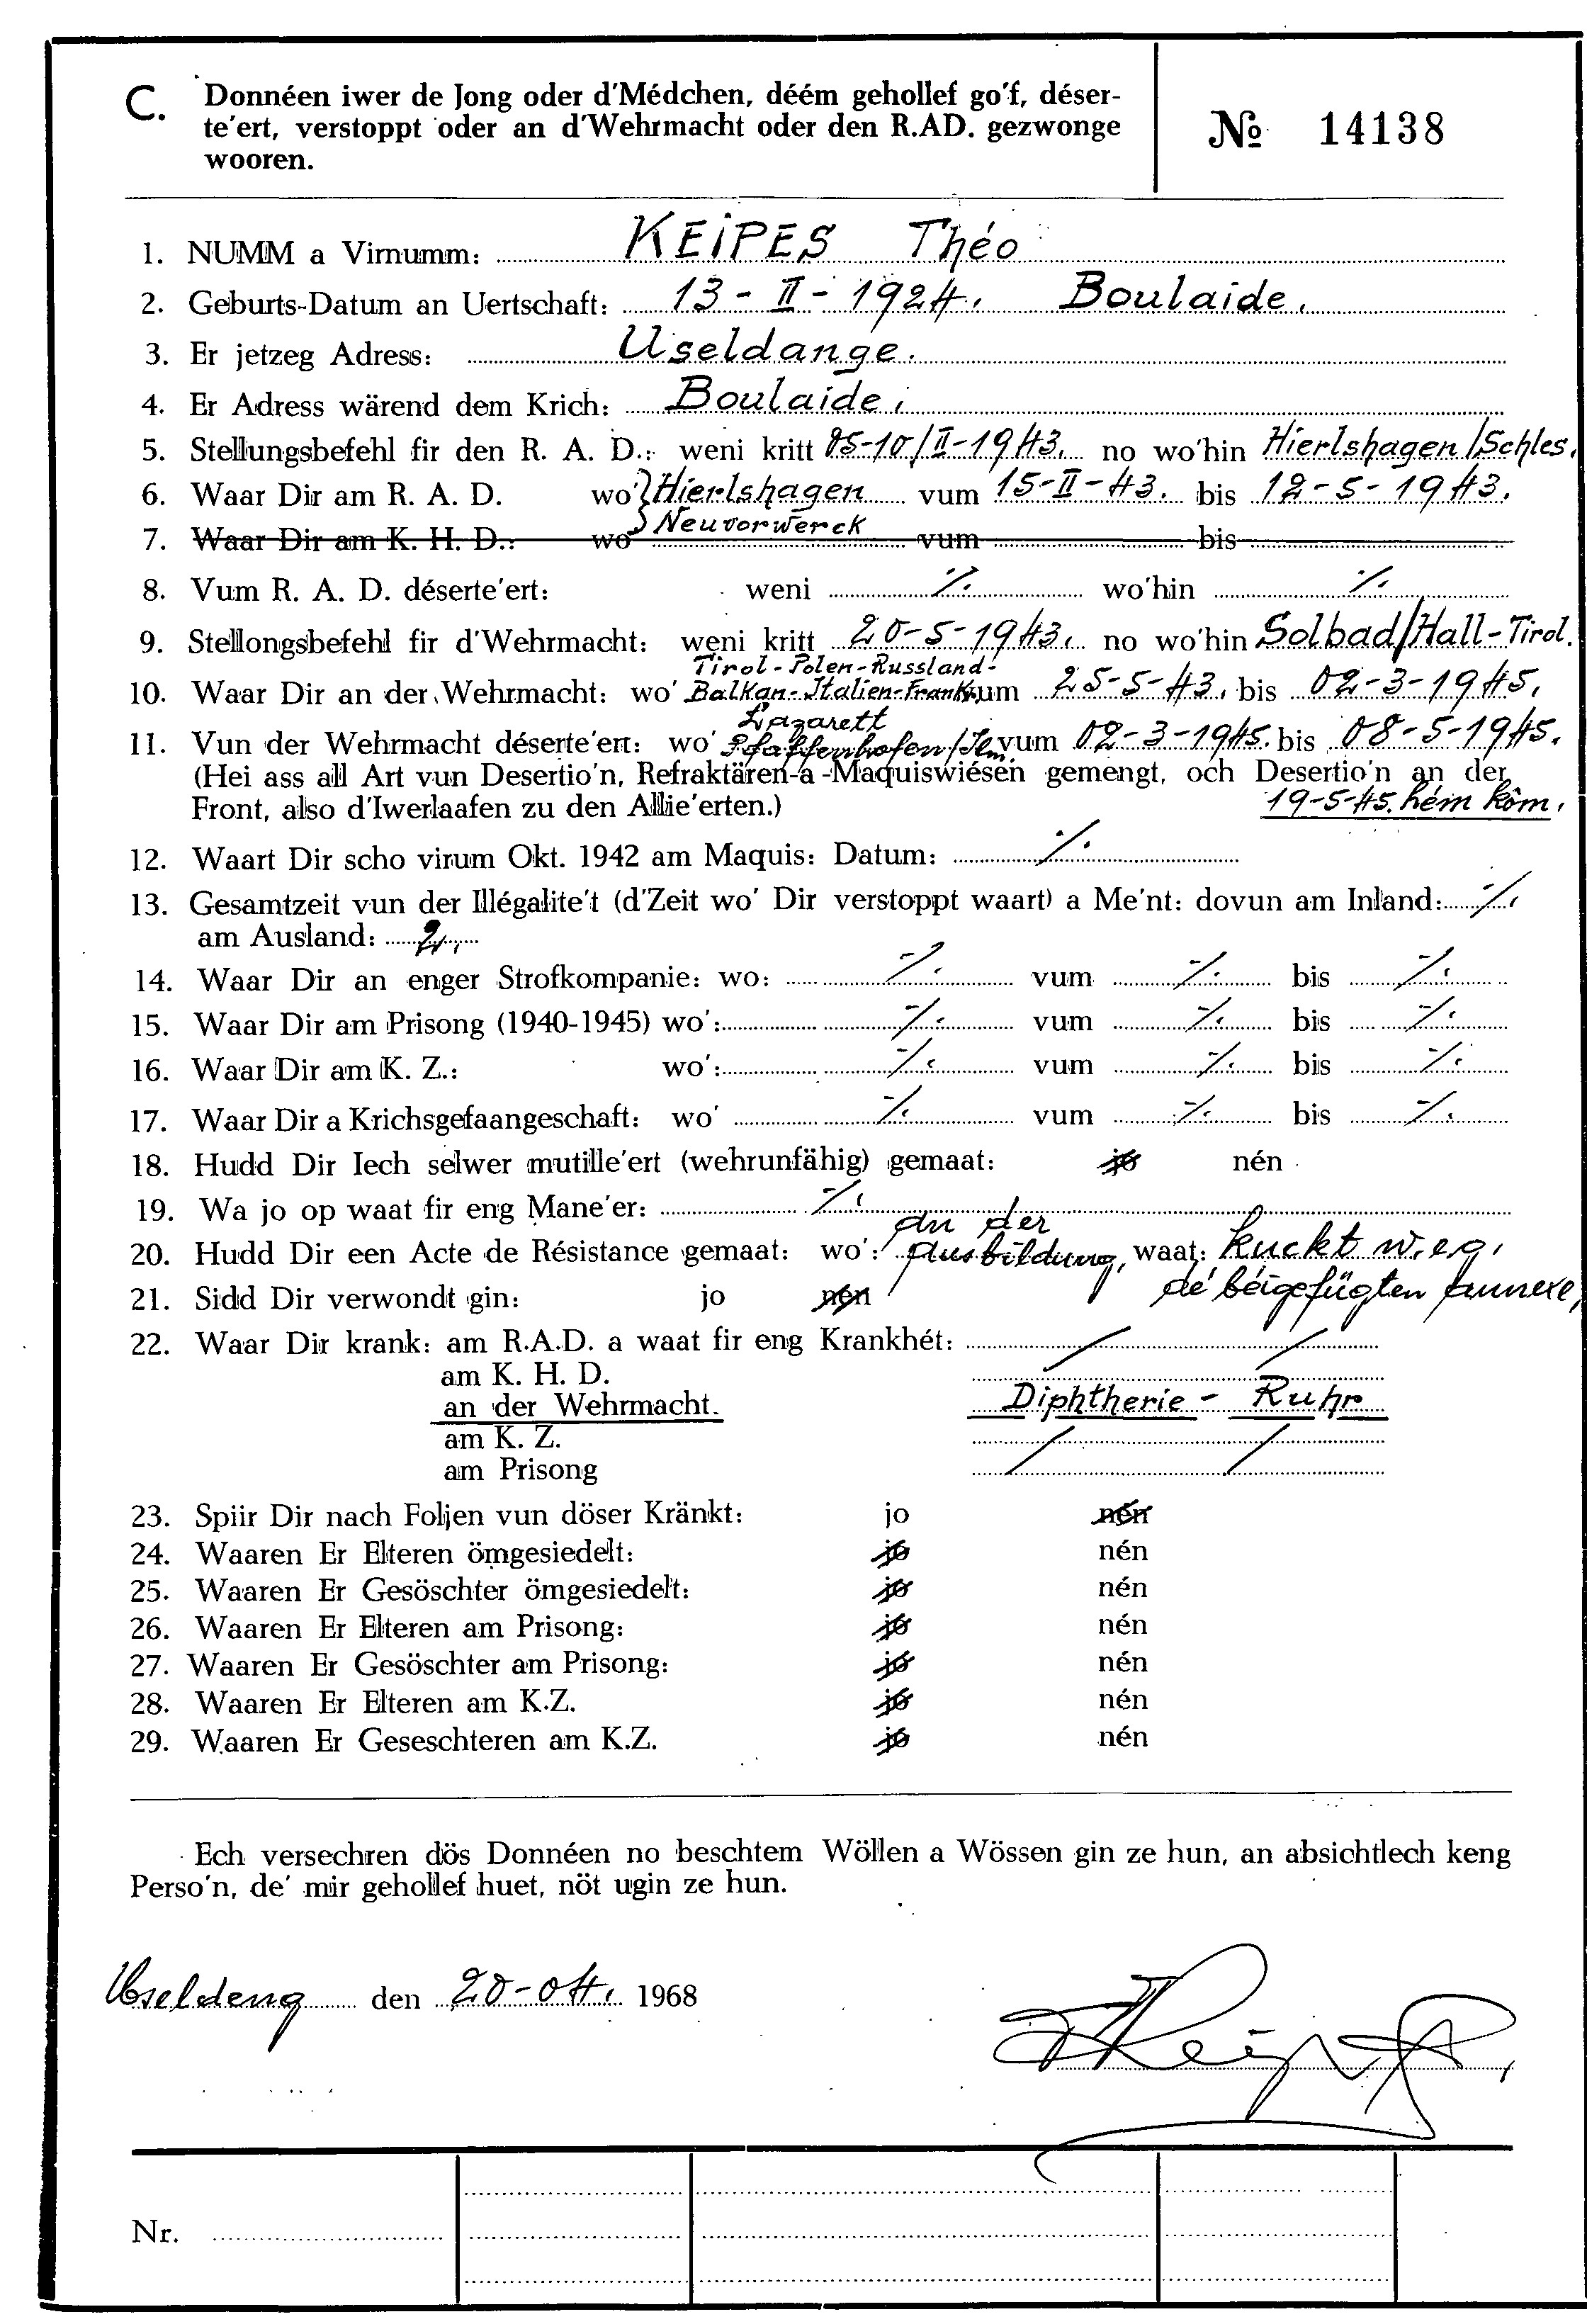 C. Donnéen iwer de Jong oder d'Médchen, déém gehollef go'f, déser-
te'ert, verstoppt oder an d'Wehrmacht oder den R.AD. gezwonge
wooren.
№ 14138
1. NUMM a Virnumm: KEIPES Théo
2. Geburts-Datum an Uertschaft: 13-II-1924. Boulaide.
3. Er jetzeg Adress: Useldange.
4. Er Adress wärend dem Krich: Boulaide.
5. Stellungsbefehl fir den R. A. D.: weni kritt 05-10/II-1943. no wo'hin Hierlshagen/Schles.
6. Waar Dir am R. A. D. wo' Hierlshagen vum 15-II-43. bis 12-5-1943.
Neuvorwerck
7. Waar Dir am K. H. D.: wo vum bis
8. Vum R. A. D. déserte'ert: weni ./. wo'hin ./.
9. Stellongsbefehl fir d'Wehrmacht: weni kritt 20-5-1943. no wo'hin Solbad/Hall-Tirol.
Tirol-Polen-Russland-
10. Waar Dir an der Wehrmacht: wo' Balkan-Italien-Frankr. vum 25-5-43. bis 02-3-1945.
Lazarett
11. Vun der Wehrmacht déserte'ert: wo' Pfaffenhofen/Ilm vum 02-3-1945. bis 08-5-1945.
(Hei ass all Art vun Desertio'n, Refraktären-a-Maquiswiésen gemengt, och Desertio'n an der
Front, also d'Iwerlaafen zu den Allie'erten.) 19-5-45. hém kôm.
12. Waart Dir scho virum Okt. 1942 am Maquis: Datum: ./.
13. Gesamtzeit vun der Illégalite't (d'Zeit wo' Dir verstoppt waart) a Me'nt: dovun am Inland: ./.
am Ausland: 2.
14. Waar Dir an enger Strofkompanie: wo: ./. vum ./. bis ./.
15. Waar Dir am Prisong (1940-1945) wo': ./. vum ./. bis ./.
16. Waar Dir am K. Z.: wo': ./. vum ./. bis ./.
17. Waar Dir a Krichsgefaangeschaft: wo' ./. vum ./. bis ./.
18. Hudd Dir Iech selwer mutille'ert (wehrunfähig) gemaat: jo nén
19. Wa jo op waat fir eng Mane'er: ./.
an der
20. Hudd Dir een Acte de Résistance gemaat: wo': Ausbildung, waat: kuckt w.e.g.
21. Sidd Dir verwondt gin: jo nén dé béigefügten Annexe,
22. Waar Dir krank: am R.A.D. a waat fir eng Krankhét: / /
am K. H. D.
an der Wehrmacht. Diphtherie - Ruhr
am K. Z. / /
am Prisong
23. Spiir Dir nach Foljen vun döser Kränkt: jo nén
24. Waaren Er Elteren ömgesiedelt: jo nén
25. Waaren Er Gesöschter ömgesiedelt: jo nén
26. Waaren Er Elteren am Prisong: jo nén
27. Waaren Er Gesöschter am Prisong: jo nén
28. Waaren Er Elteren am K.Z. jo nén
29. Waaren Er Geseschteren am K.Z. jo nén
Ech versechren dös Donnéen no beschtem Wöllen a Wössen gin ze hun, an absichtlech keng
Perso'n, de' mir gehollef huet, nöt ugin ze hun.
Useldeng den 20-Okt. 1968
Nr.